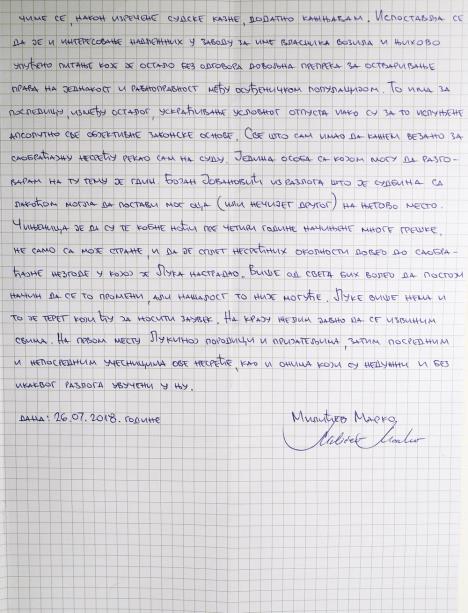 ЧИМЕ СЕ, НАКОН ИЗРЕЧЕНЕ СУДСКЕ КАЗНЕ, ДОДАТНО КАЖЊАВАМ. ИСПОСТАВЉА СЕ
ДА ЈЕ И ИНТЕРЕСОВАЊЕ НАДЛЕЖНИХ У ЗАВОДУ ЗА ИМЕ ВЛАСНИКА ВОЗИЛА И ЊИХОВО
УПУЋЕНО ПИТАЊЕ КОЈЕ ЈЕ ОСТАЛО БЕЗ ОДГОВОРА ДОВОЉНА ПРЕПРЕКА ЗА ОСТВАРИВАЊЕ
ПРАВА НА ЈЕДНАКОСТ И РАВНОПРАВНОСТ МЕЂУ ОСУЂЕНИЧКОМ ПОПУЛАЦИЈОМ. ТО ИМА ЗА
ПОСЛЕДИЦУ, ИЗМЕЂУ ОСТАЛОГ, УСКРАЋИВАЊЕ УСЛОВНОГ ОТПУСТА ИАКО СУ ЗА ТО ИСПУЊЕНЕ
АПСОЛУТНО СВЕ ОБЈЕКТИВНЕ ЗАКОНСКЕ ОСНОВЕ. СВЕ ШТО САМ ИМАО ДА КАЖЕМ ВЕЗАНО ЗА
САОБРАЋАЈНУ НЕСРЕЋУ РЕКАО САМ НА СУДУ. ЈЕДИНА ОСОБА СА КОЈОМ МОГУ ДА РАЗГО-
ВАРАМ НА ТУ ТЕМУ ЈЕ ГДИН БОГАН ЈОВАНОВИЋ ИЗ РАЗЛОГА ШТО ЈЕ СУДБИНА СА
ЛАКОЋОМ МОГЛА ДА ПОСТАВИ МОГ ОЦА (ИЛИ НЕЧИЈЕГ ДРУГОГ) НА ЊЕГОВО МЕСТО.
ЧИЊЕНИЦА ЈЕ ДА СУ ТЕ КОБНЕ НОЋИ ПРЕ ЧЕТИРИ ГОДИНЕ НАЧИЊЕНЕ МНОГЕ ГРЕШКЕ,
НЕ САМО СА МОЈЕ СТРАНЕ, И ДА ЈЕ СПЛЕТ НЕСРЕЋНИХ ОКОЛНОСТИ ДОВЕО ДО САОБРА-
ЋАЈНЕ НЕЗГОДЕ У КОЈОЈ ЈЕ ЛУКА НАСТРАДАО. ВИШЕ ОД СВЕГА БИХ ВОЛЕО ДА ПОСТОЈИ
НАЧИН ДА СЕ ТО ПРОМЕНИ, АЛИ НАЖАЛОСТ ТО НИЈЕ МОГУЋЕ. ЛУКЕ ВИШЕ НЕМА И
ТО ЈЕ ТЕРЕТ КОЈИ ЋУ ЗА НОСИТИ ЗАУВЕК. НА КРАЈУ ЖЕЛИМ ЈАВНО ДА СЕ ИЗВИНИМ
СВИМА. НА ПРВОМ МЕСТУ ЛУКИНОЈ ПОРОДИЦИ И ПРИЈАТЕЉИМА, ЗАТИМ ПОСРЕДНИМ
И НЕПОСРЕДНИМ УЧЕСНИЦИМА ОВЕ НЕСРЕЋЕ, КАО И ОНИМА КОЈИ СУ НЕДУЖНИ И БЕЗ
ИКАКВОГ РАЗЛОГА УВУЧЕНИ У ЊУ.
ДАНА: 26.07.2018. ГОДИНЕ
МИЛИЋЕВ МАРКО